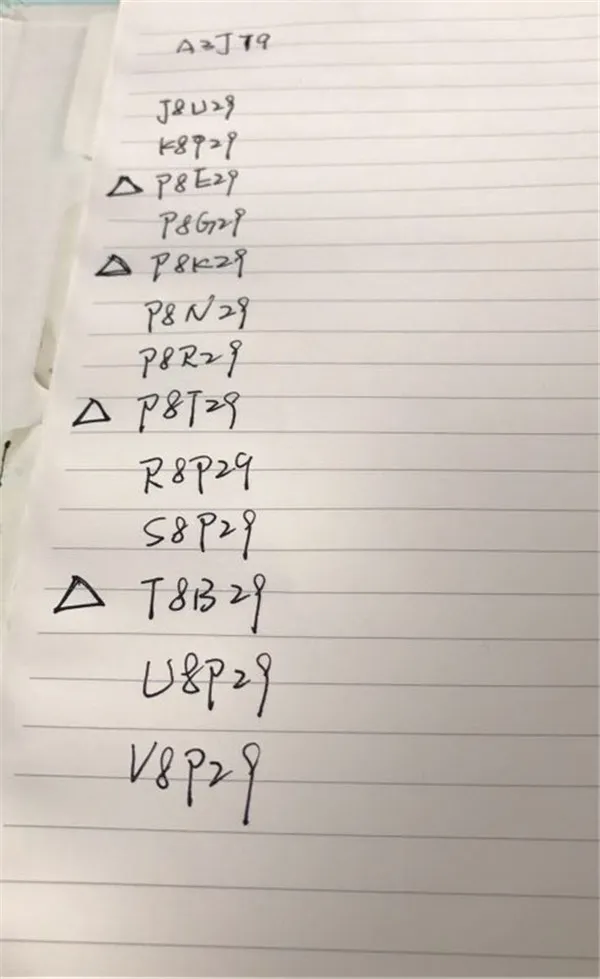 A2J79
J8U29
K8P29
△ P8E29
P8G29
△ P8K29
P8N29
P8R29
△ P8T29
R8P29
S8P29
△ T8B29
U8P29
V8P29